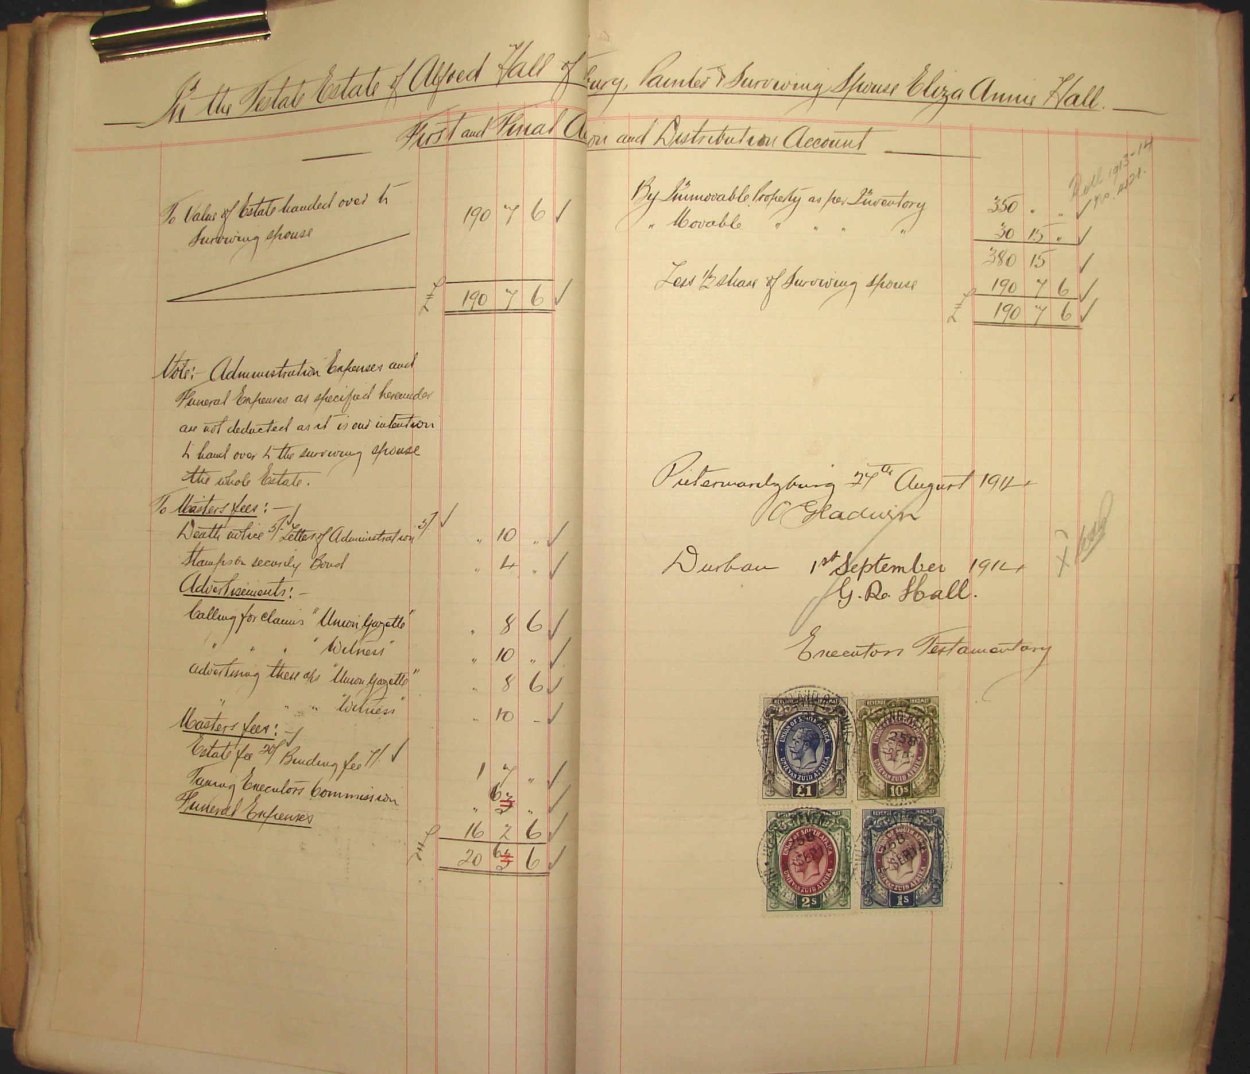 In the Testate Estate of Alfred Hall of burg, Painter & Surviving Spouse Eliza Annie Hall.
First and Final and Distribution Account
To Value of Estate handed over to
Surviving spouse 190 7 6
£ 190 7 6
Note:- Administration Expenses and
Funeral Expenses as specified hereunder
are not deducted as it is our intention
to hand over to the surviving spouse
the whole Estate.
To Masters fees:-
Death notice 5/- Letters of Administration 5/- " 10 "
Stamps on security Bond " 4 "
Advertisements:-
Calling for claims "Union Gazette" " 8 6
" " " "Witness" " 10 "
Advertising these a/cs "Union Gazette" " 8 6
" " " "Witness" " 10 -
Masters fees:-
Estate fee 20/- Binding fee 7/- 1 7 "
Taxing Executors Commission
Funeral Expenses 16 2 6
£ 20 6
By Immovable Property as per Inventory 350 " "
" Movable " " " " 30 15 "
380 15
Less 1/2 share of Surviving spouse 190 7 6
£ 190 7 6
1913-14
Pietermaritzburg 27th August 1914
Gladwin
Durban 1st September 1914
G. Ro Hall.
Executors Testamentary
REVENUE INKOMST
UNION OF SOUTH AFRICA
UNIE VAN ZUID AFRIKA
£1
REVENUE INKOMST
UNION OF SOUTH AFRICA
UNIE VAN ZUID AFRIKA
10s
UNION OF SOUTH AFRICA
UNIE VAN ZUID AFRIKA
2s
UNION OF SOUTH AFRICA
UNIE VAN ZUID AFRIKA
1s